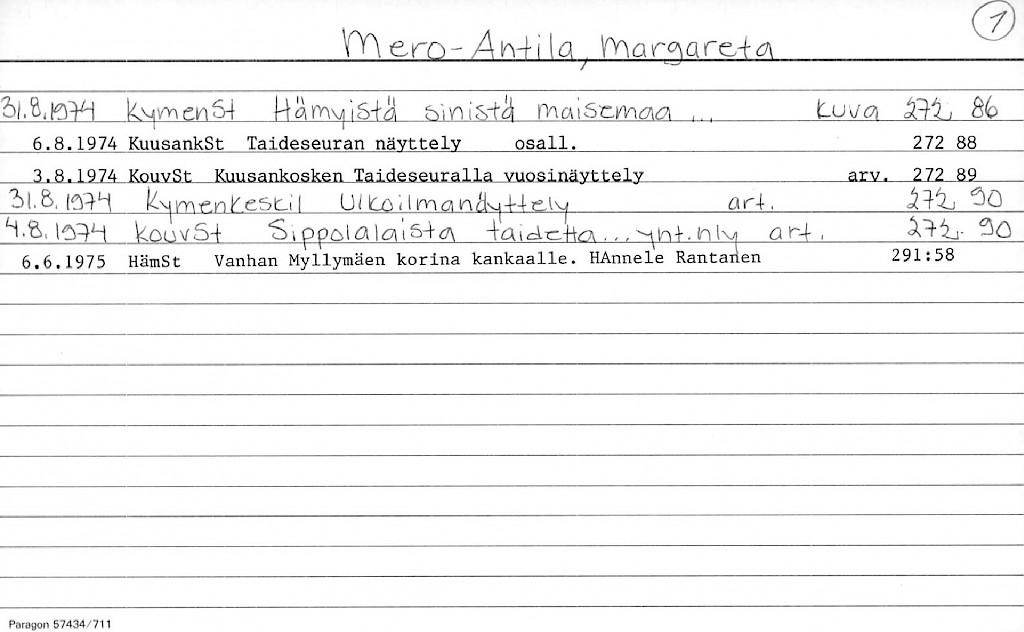 1
Mero-Antila, Margareta
31.8.1974 KymenSt Hämyistä sinistä maisemaa ... kuva 272, 86
6.8.1974 KuusankSt Taideseuran näyttely osall. 272 88
3.8.1974 KouvSt Kuusankosken Taideseuralla vuosinäyttely arv. 272 89
31.8.1974 Kymenkeskil Ulkoilmanäyttely art. 272, 90
4.8.1974 KouvSt Sippolalaista taidetta... yht.nly art. 272. 90
6.6.1975 HämSt Vanhan Myllymäen korina kankaalle. HAnnele Rantanen 291:58
Paragon 57434/711